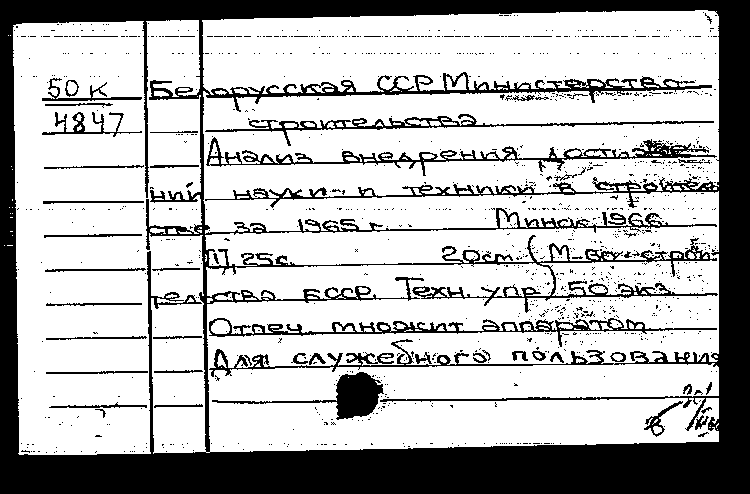 50 к Белорусская ССР Министерство
4847 строительства.
Анализ внедрения достиже
ний науки и техники в строитель
стве за 1965 г. Минск, 1966.
[1], 25 с. 20 см. (М-во строи-
тельства БССР. Техн. упр.) 50 экз.
Отпеч. множит аппаратом
Для служебного пользования